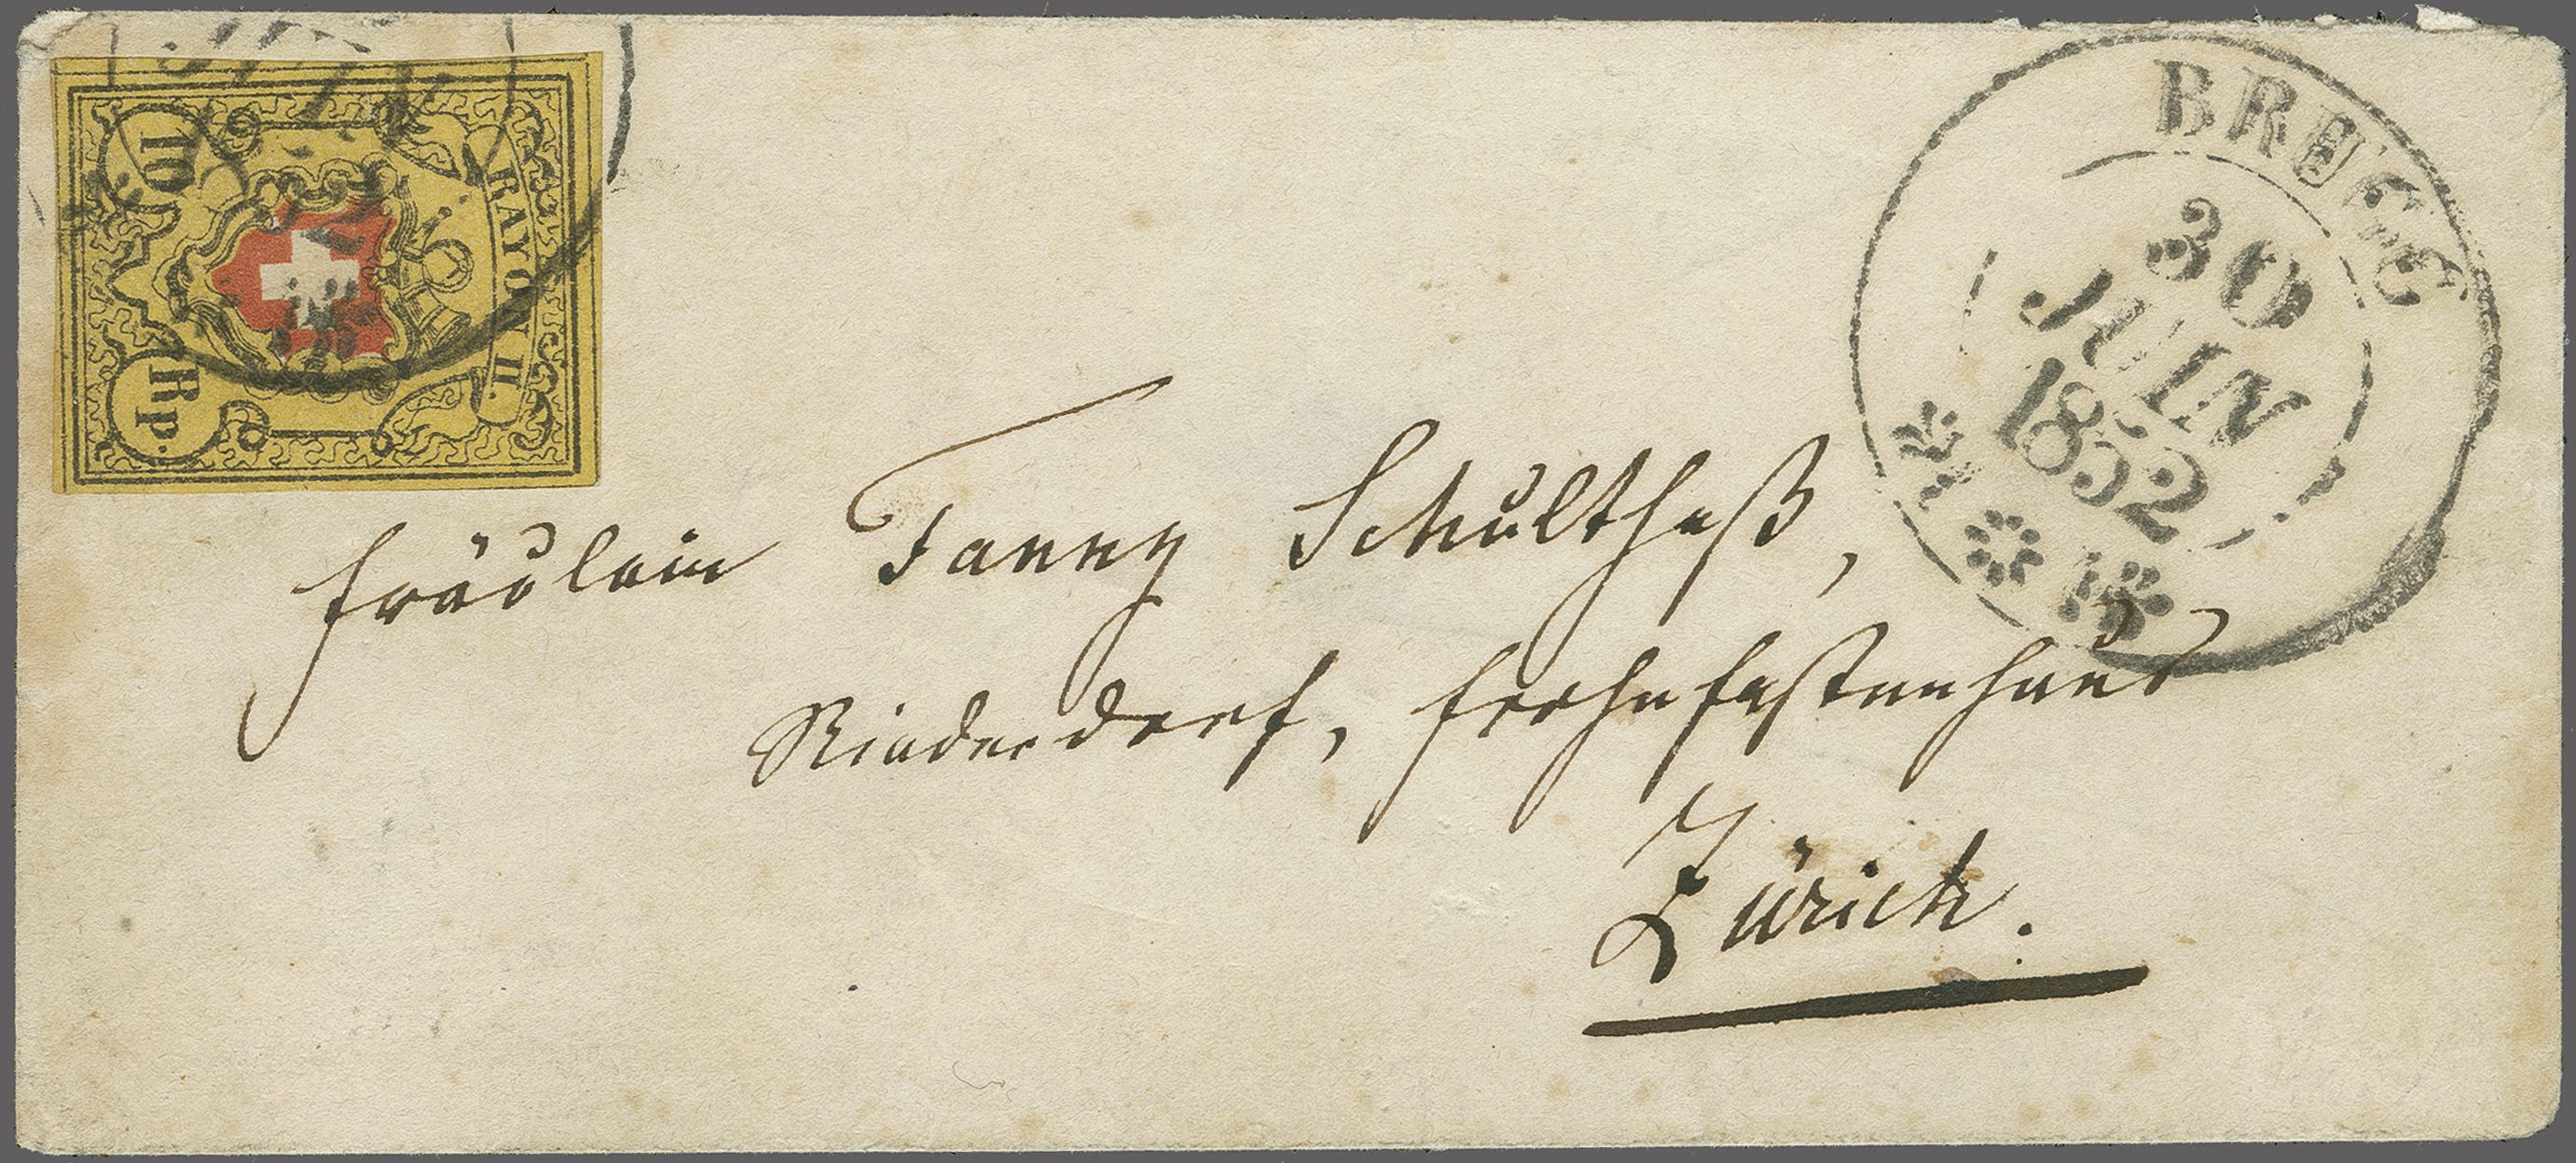 10
Rp.
RAYON II.
BRUGG
30
JUIN
1852
Fräulein Fanny Schultheß,
Niederdorf, Frohnfastenhaus
Zürich.